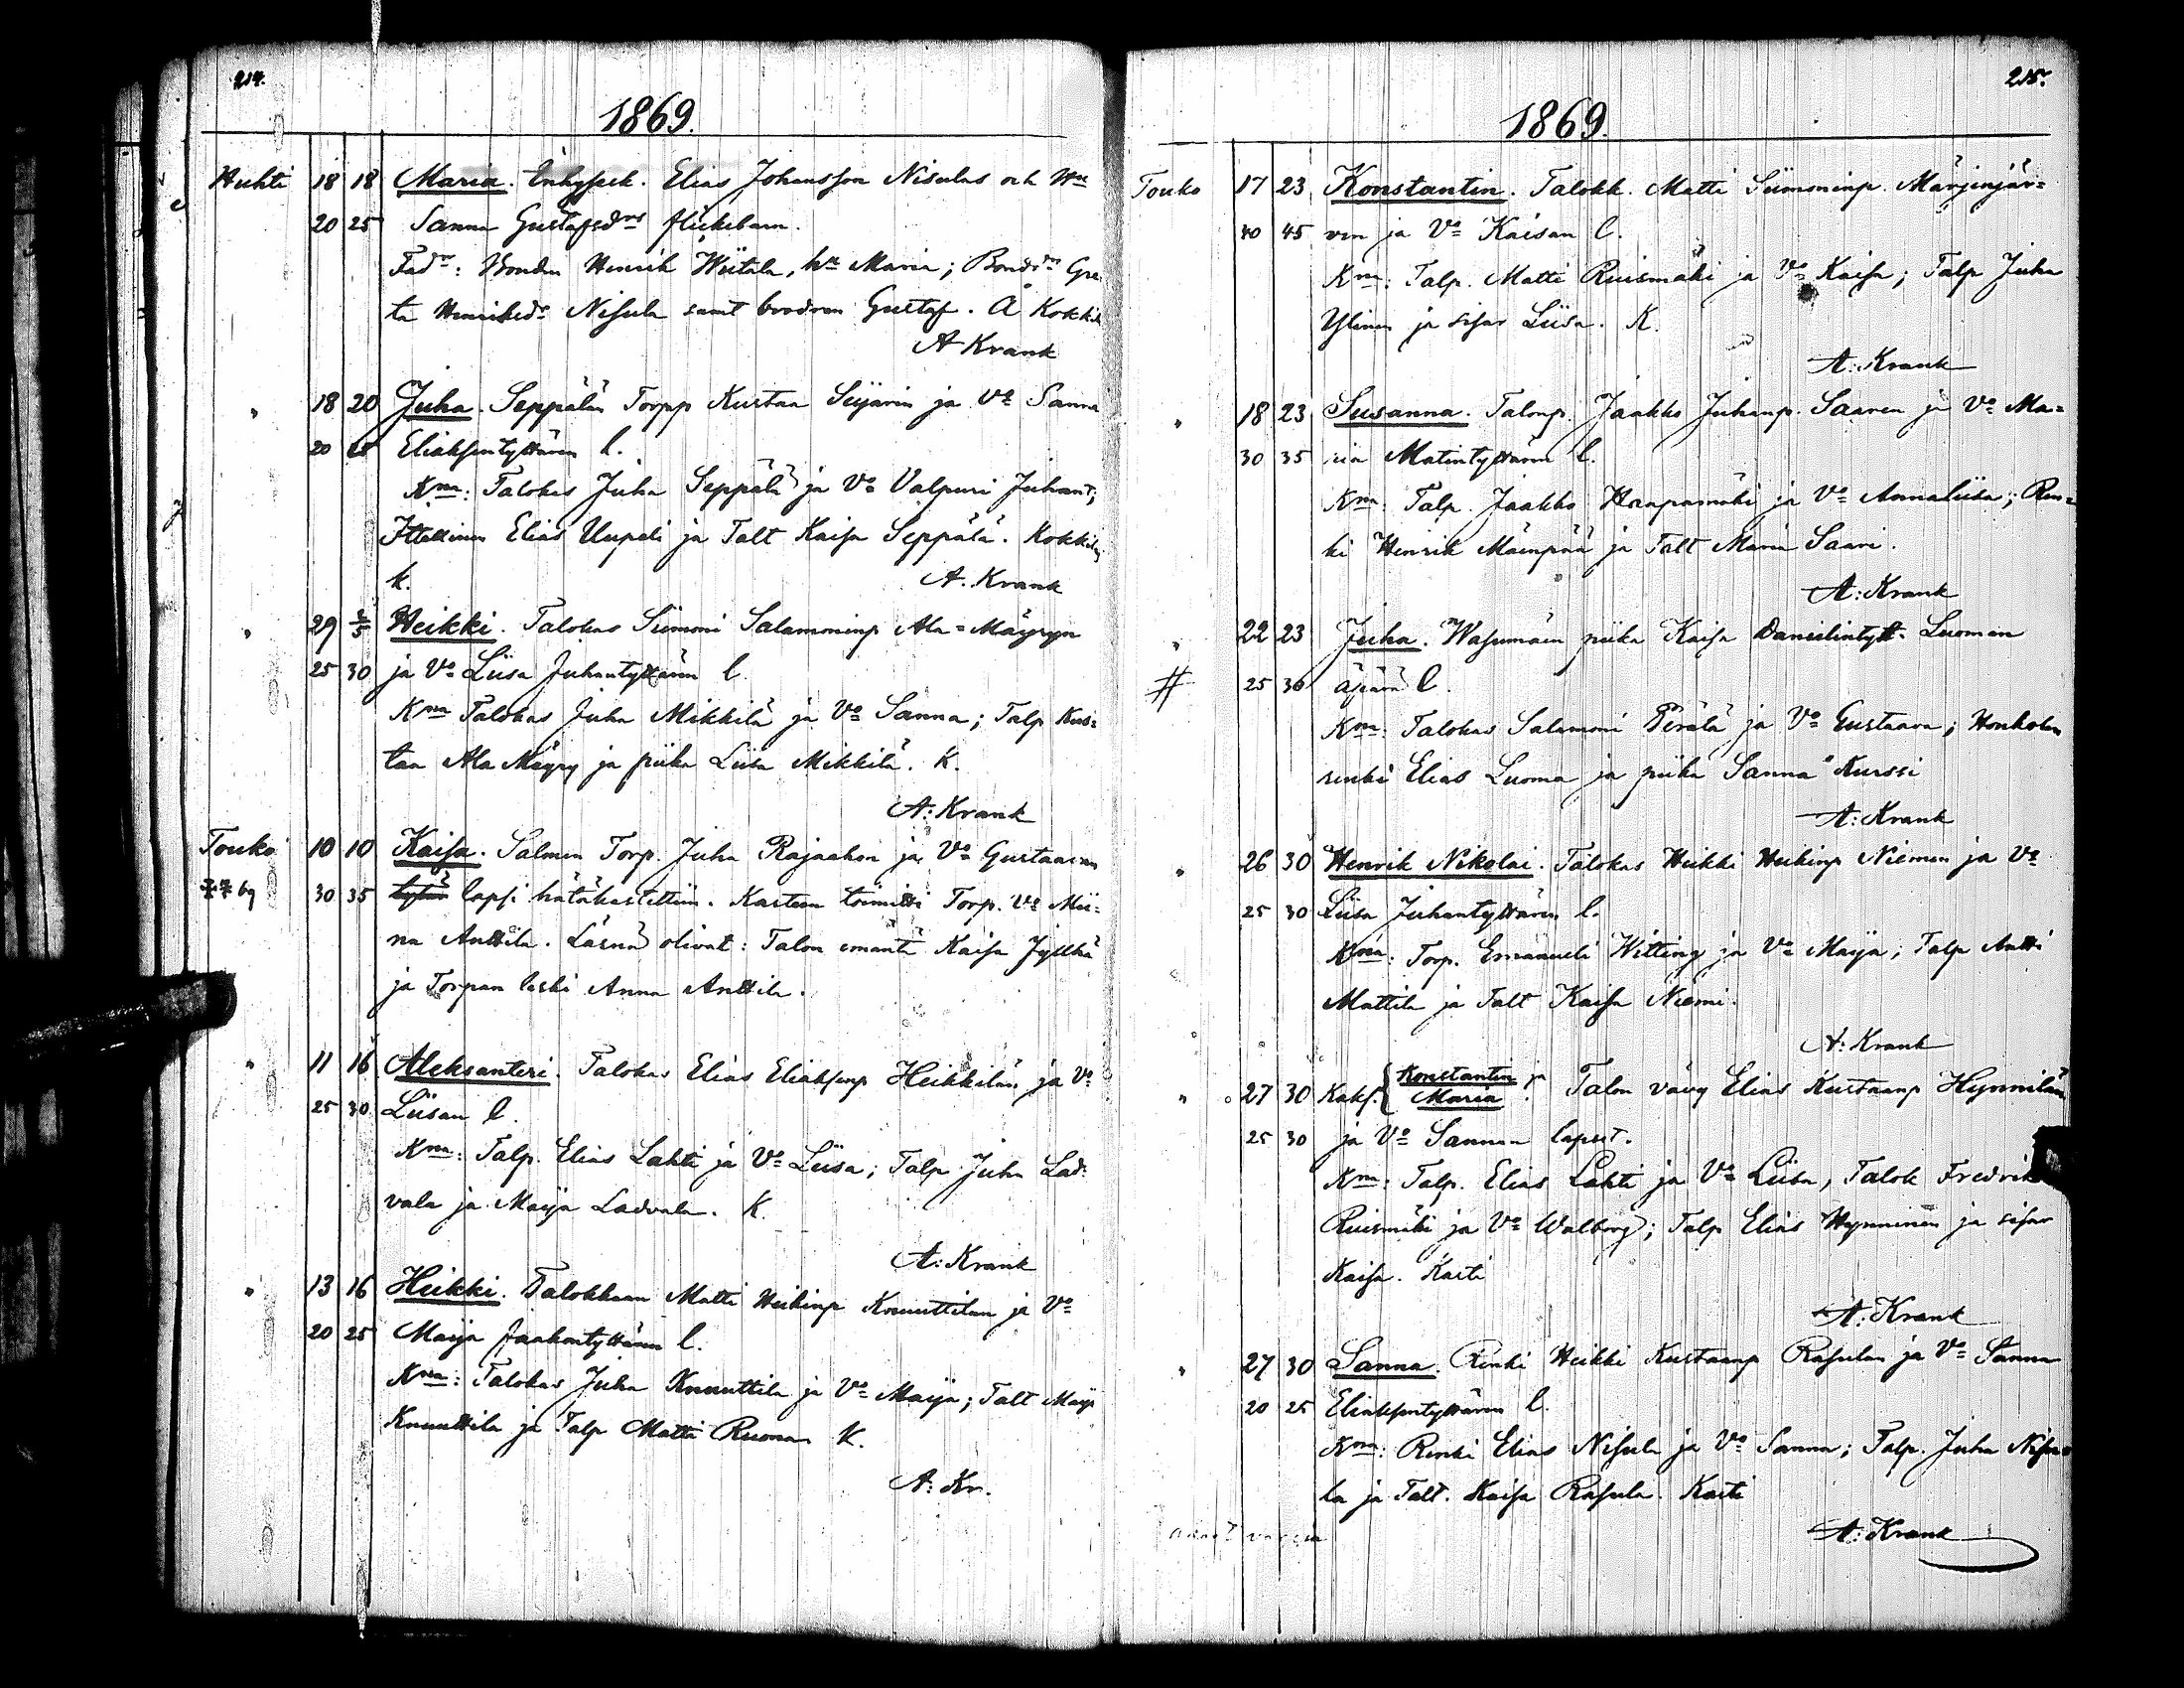 214.
1869.
Huhti 18 18 Maria. Inhyssek. Elias Johansson Nisulas och Hu
20 25 Sanna Gustafsdrs flickebarn.
Fadr: Bonden Henrik Wiitala, hu Maria; Bondrn Gre
ta Henriksdr Nisula samt brodren Gustaf. Å Kokkil
A Krank
" 18 20 Juha. Seppälän Torpp Kustaa Sijarin ja Vo Sanna
20 25 Eliaksentyttären l.
Kmn: Talokas Juha Seppälä ja Vo Valpuri Juhant;
Itsellinen Elias Uupeli ja Talt Kaisa Seppälä. Kokkiloj
k. A. Krank
" 29 2/5 Heikki. Talokas Siimoni Salamoninp Ala=Mäyryn
25 30 ja Vo Liisa Juhantyttären l.
Kmn Talokas Juha Mikkilä ja Vo Sanna; Talp Kus=
taa Ala Mäyry ja piika Liisa Mikkilä. K.
A: Krank
Touko 10 10 Kaisa. Salmen Torp. Juha Rajaahon ja Vo Gustaavan
69 30 35 lapsi hätäkastettiin. Kasteen toimitti Torp. Vo Mii=
na Anttila. Läsnä olivat: Talon emäntä Kaisa Jyllhä
ja Torpan leski Anna Anttila.
" 11 16 Aleksanteri. Talokas Elias Eliaksenp Heikkilän ja Vo
25 30 Liisan l.
Kmn: Talp. Elias Lahti ja Vo Liisa; Talp Juha Lad=
vala ja Maija Ladvala. K.
A: Krank
" 13 16 Heikki. Talokkaan Matti Heikinp Knuuttilan ja Vo
20 25 Maija Jaakontyttären l.
Kmn: Talokas Juha Knuuttila ja Vo Maija; Talt Maija
Knuuttila ja Talp Matti Ruona K.
A: Kr.
215.
1869.
Touko 17 23 Konstantin. Talokk. Matti Siimoninp. Märjenjär=
40 45 ven ja Vo Kaisan l.
Kmn: Talp. Matti Ruismäki ja Vo Kaisa; Talp Juha
Ylinen ja sisar Liisa. K.
A: Krank
" 18 23 Susanna. Talonp. Jaakko Juhanp. Saaren ja Vo Ma=
30 35 ria Matintyttären l.
Kmn: Talp. Jaakko Haapamäki ja Vo Annaliisa; Ren=
ki Henrik Mäenpää ja Talt Maria Saari.
A: Krank
" 22 23 Juha. Wasumäen piika Kaisa Danielintytt. Luoman
# 25 30 äpärä l.
Kmn: Talokas Salamoni Perälä ja Vo Gustaava; Honkolan
renki Elias Luoma ja piika Sanna Kurssi
A: Krank
" 26 30 Henrik Nikolai. Talokas Heikki Heikinp Niemen ja Vo
25 30 Liisa Juhantyttären l.
Kmn: Torp. Emanueli Witting ja Vo Maija; Talp Antti
Mattila ja Talt Kaisa Niemi.
A: Krank
" 27 30 Kaks. { Konstantin ja Maria. Talon vävy Elias Kustaanp Hynnilän
25 30 ja Vo Sannan lapset.
Kmn: Talp. Elias Lahti ja Vo Liisa, Talok Fredrik
Ruismäki ja Vo Walborg; Talp Elias Hynninen ja sisar
Kaisa. Kasti
A: Krank
" 27 30 Sanna. Renki Heikki Kustaanp Rasulan ja Vo Sanna
20 25 Eliaksentyttären l.
Kmn: Renki Elias Nisula ja Vo Sanna; Talp. Juha Nisu=
la ja Talt. Kaisa Rasula. Kasti
A: Krank